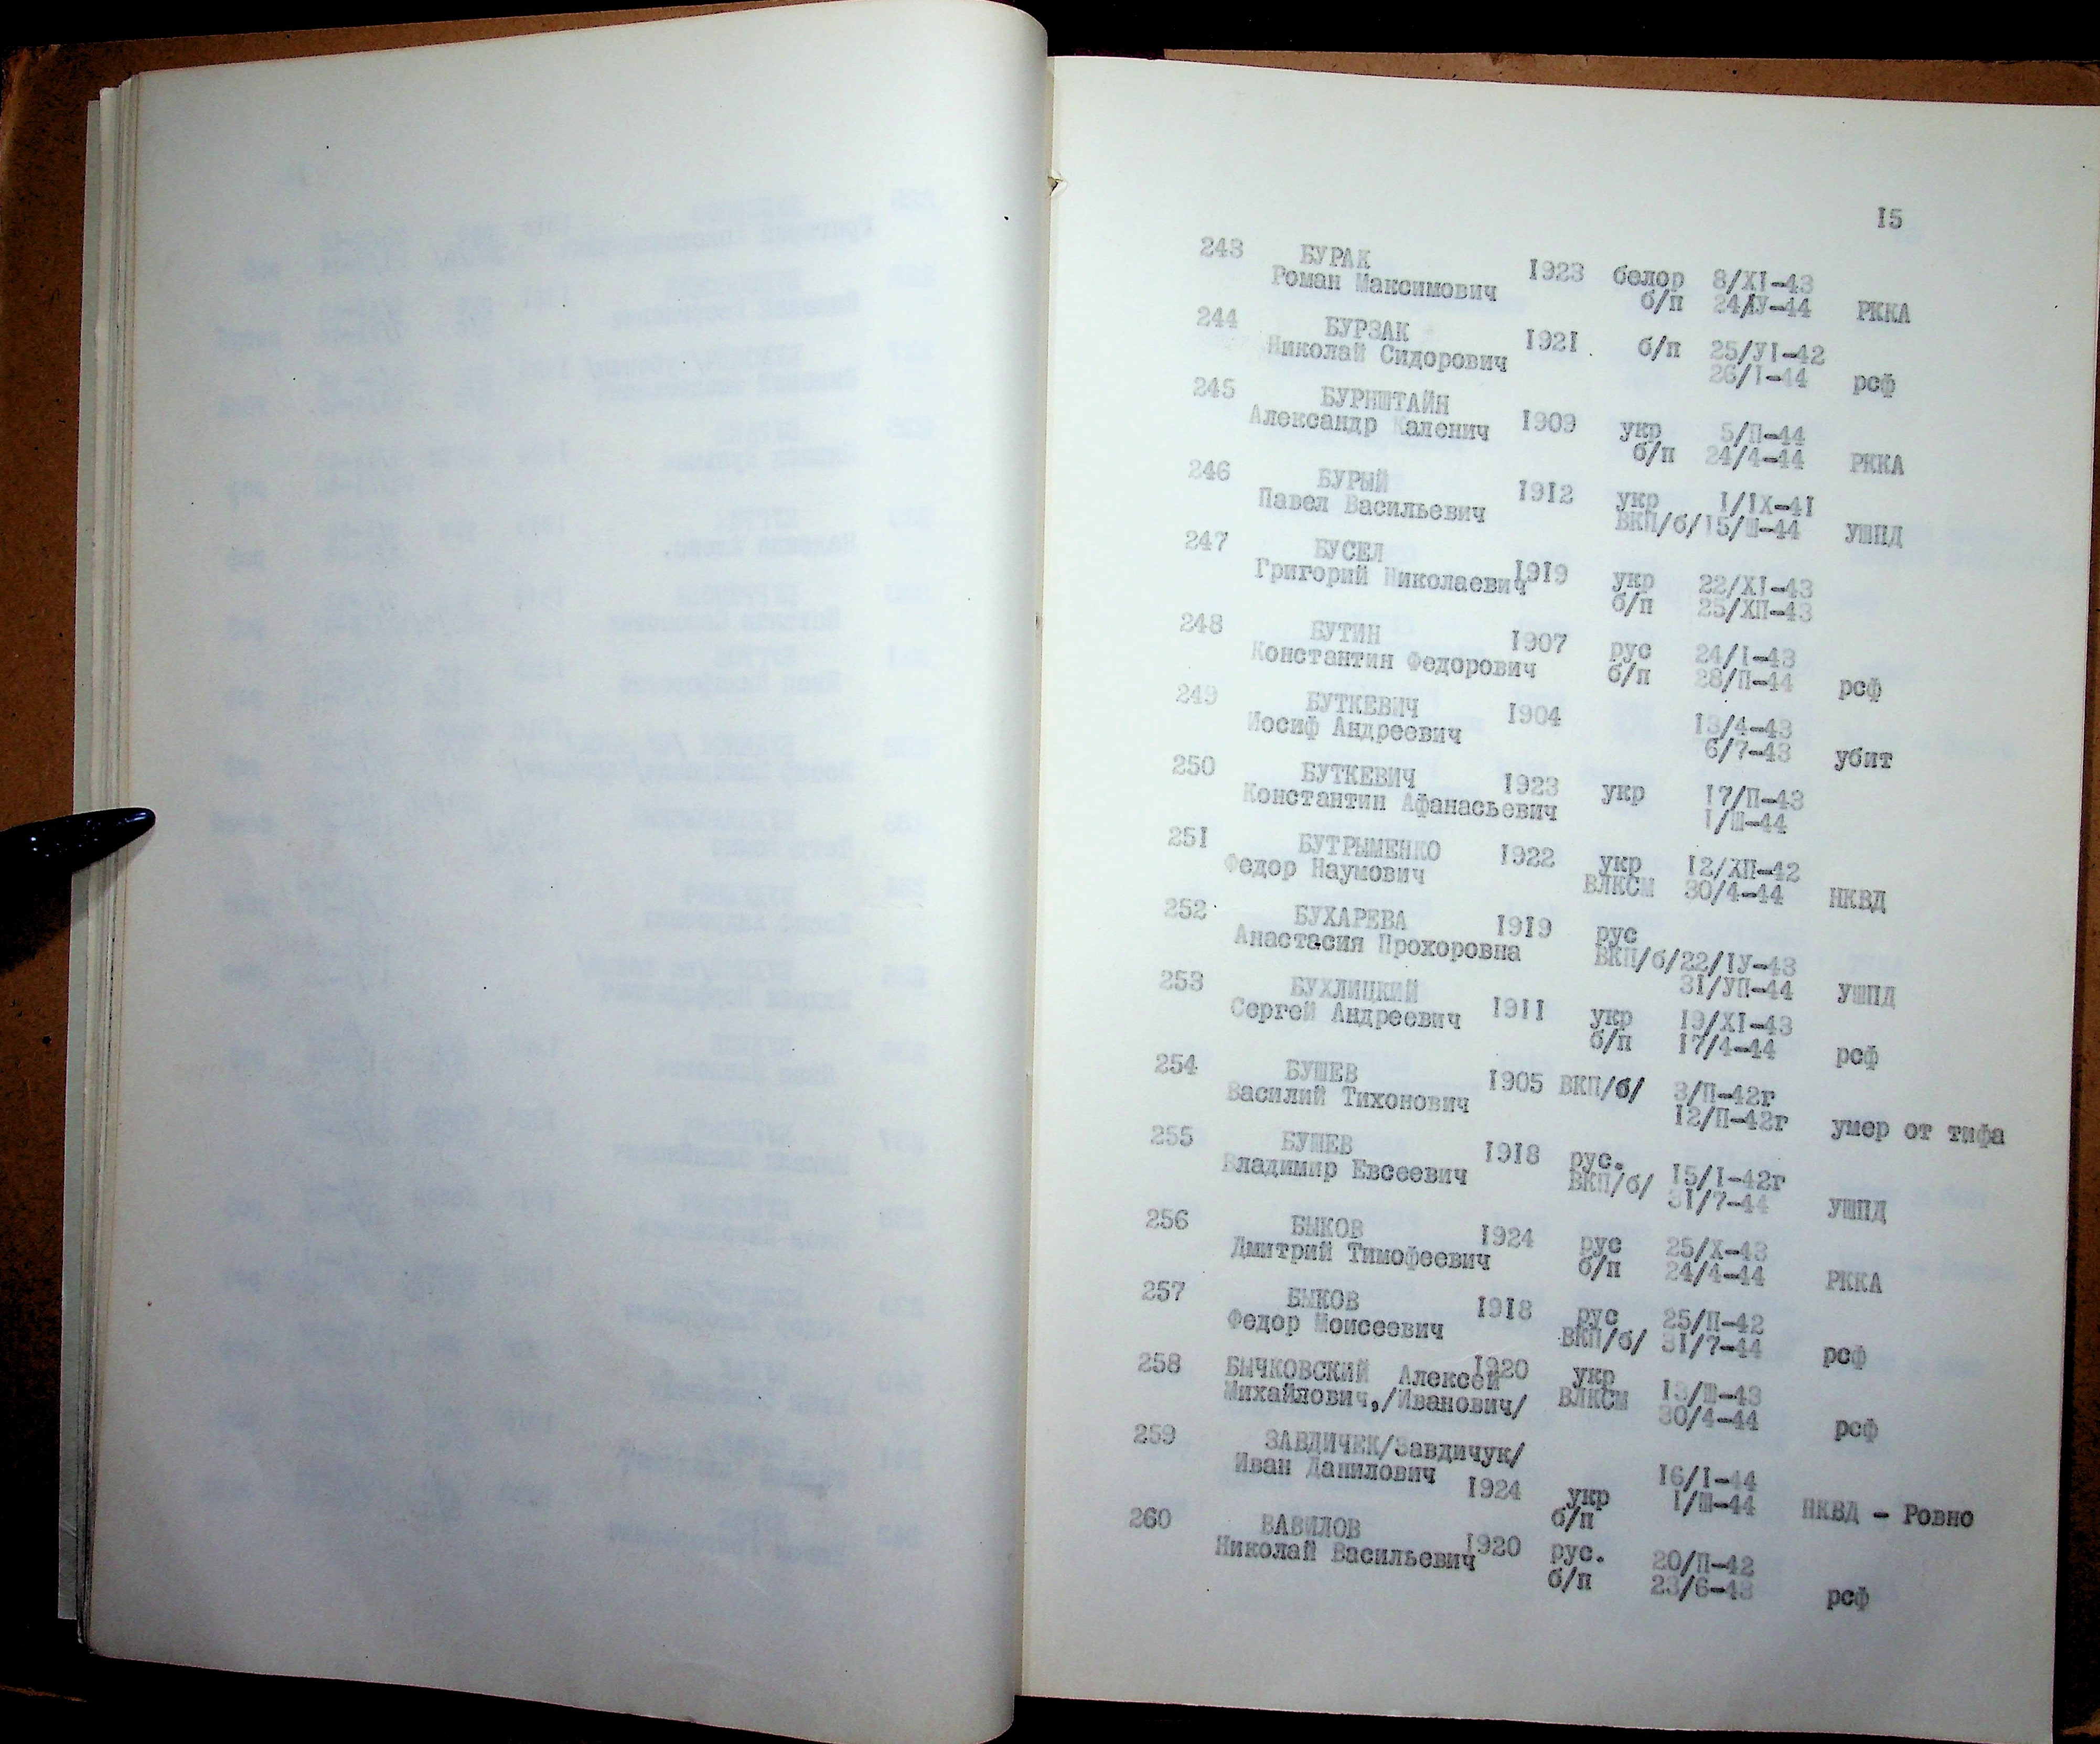 15
243 БУРАК 1923 белор 8/ХІ-43
Роман Максимович б/п 24/ІУ-44 РККА
244 БУРЗАК 1921 б/п 25/УІ-42
Николай Сидорович 26/І-44 рсф
245 БУРНШТАЙН
Александр Каленич 1909 укр 5/П-44
б/п 24/4-44 РККА
246 БУРЫЙ 1912 укр І/ІХ-4І
Павел Васильевич ВКП/б/ 15/Ш-44 УШПД
247 БУСЕЛ 1919 укр 22/ХІ-43
Григорий Николаевич б/п 25/ХП-43
248 БУТИН 1907 рус 24/І-43
Константин Федорович б/п 28/П-44 рсф
249 БУТКЕВИЧ 1904 13/4-43
Иосиф Андреевич 6/7-43 убит
250 БУТКЕВИЧ 1923 укр 17/П-43
Константин Афанасьевич 1/Ш-44
251 БУТРЫМЕНКО 1922 укр 12/ХП-42
Федор Наумович ВЛКСМ 30/4-44 НКВД
252 БУХАРЕВА 1919 рус
Анастасия Прохоровна ВКП/б/ 22/ІУ-43
31/УП-44 УШПД
253 БУХЛИЦКИЙ 1911 укр 19/ХІ-43
Сергей Андреевич б/п 17/4-44 рсф
254 БУШЕВ 1905 ВКП/б/ 3/П-42г
Василий Тихонович 12/П-42г умер от тифа
255 БУШЕВ 1918 рус. 15/І-42г
Владимир Евсеевич ВКП/б/ 31/7-44 УШПД
256 БЫКОВ 1924 рус 25/Х-43
Дмитрий Тимофеевич б/п 24/4-44 РККА
257 БЫКОВ 1918 рус 25/П-42
Федор Моисеевич ВКП/б/ 31/7-44 рсф
258 БЫЧКОВСКИЙ Алексей 1920 укр 13/Ш-43
Михайлович,/Иванович/ ВЛКСМ 30/4-44 рсф
259 ЗАВДИЧЕК/Завдичук/
Иван Данилович 16/І-44
1924 укр 1/Ш-44 НКВД - Ровно
б/п
260 ВАВИЛОВ 1920 рус. 20/П-42
Николай Васильевич б/п 23/6-43 рсф